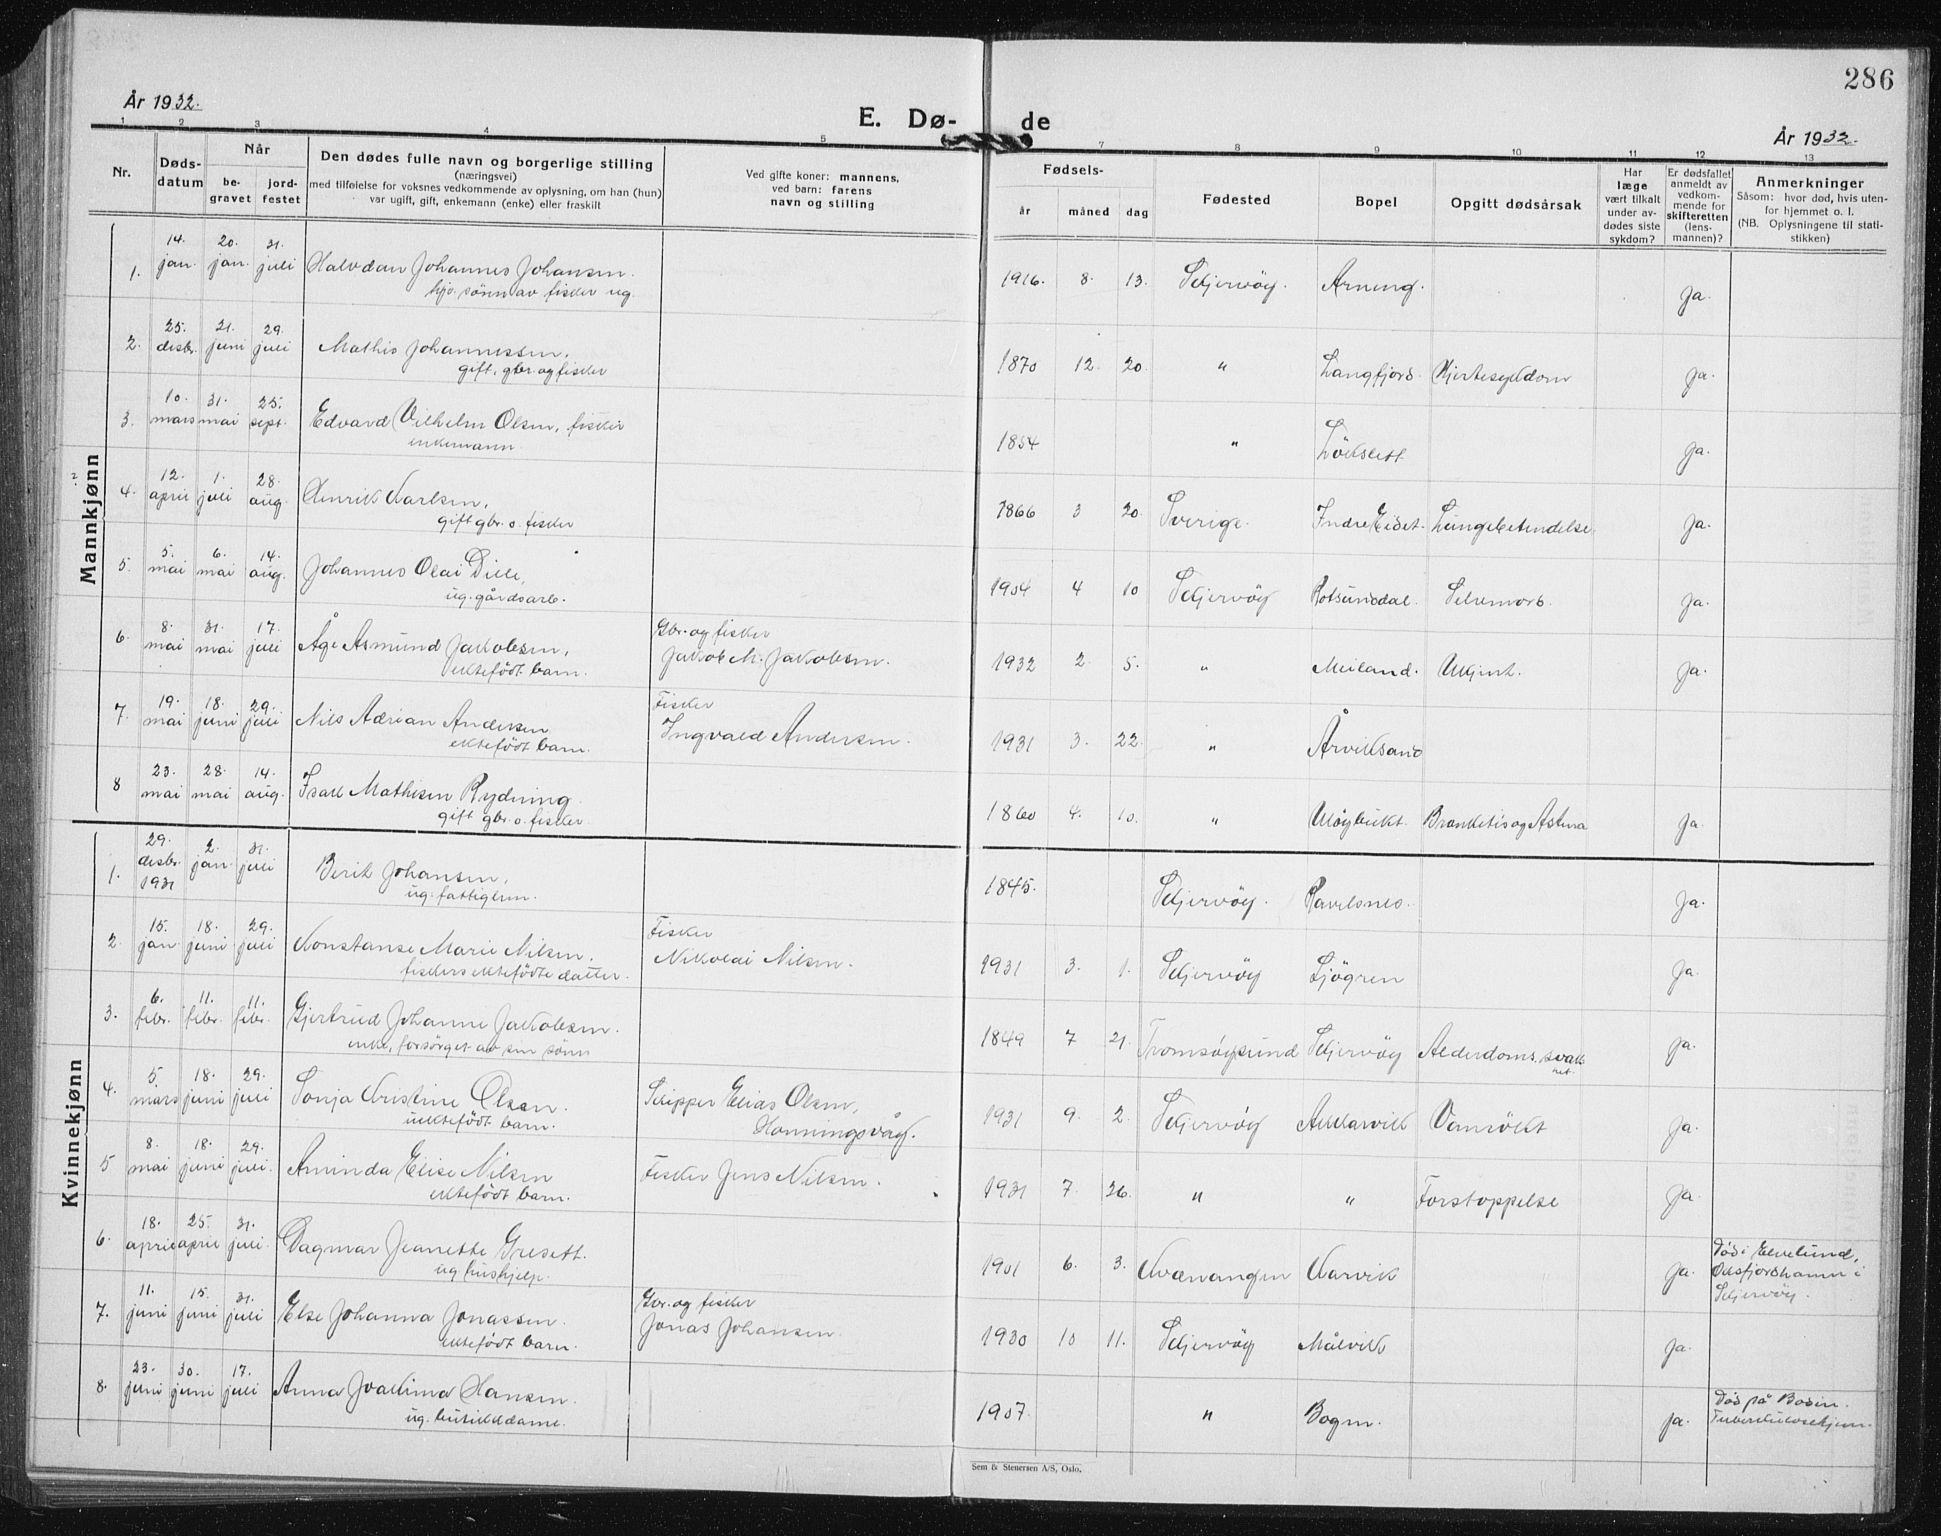 286
År 1932.
E. Dø- de
År 1932.
1 2 3 4 5 7 8 9 10 11 12 13
Nr.
Døds-
datum
Når
be-
gravet
jord-
festet
Den dødes fulle navn og borgerlige stilling
(næringsvei)
med tilføielse for voksnes vedkommende av oplysning, om han (hun)
var ugift, gift, enkemann (enke) eller fraskilt
Ved gifte koner: mannens,
ved barn: farens
navn og stilling
Fødsels-
år måned dag
Fødested
Bopel
Opgitt dødsårsak
Har
læge
vært tilkalt
under av-
dødes siste
sykdom?
Er dødsfallet
anmeldt av
vedkom-
mende for
skifteretten
(lens-
mannen)?
Anmerkninger
Såsom: hvor død, hvis uten-
for hjemmet o. l.
(NB. Oplysningene til stati-
stikken)
Mannkjønn
1. 14. jan. 20. jan. 31. juli Halvdan Johannes Johansen. 1916. 8. 13. Skjervöy. Arnöng. Ja.
hjv. sönn av fisker ug.
2. 25. desbr. 21. juni 29. juli Mathis Johannessen, 1870 12. 20. " Langfjord. Hjertesykdom Ja.
gift, gbr. og fisker
3. 10. mars 31. mai 25. sept. Edvard Vilhelm Olsen, fisker 1854 " Lökslett Ja.
enkemann.
4. 12. april 1. juli 28. aug. Henrik Karlsen, 1866 3 20. Sverige. Indre Eidet. Lungebetendelse Ja.
gift gbr. o. fisker
5. 5. mai 6. mai 14. aug. Johannes Olai Dille, 1904 4 10 Skjervöy Rotsundal. Selvmord. Ja.
ug. gårdsarb.
6. 8. mai 31. mai 17. juli Åge Asmund Jakobsen, Gbr. og fisker 1932 2. 5. " Meiland. Ukjent. Ja.
ektefödt barn. Jakob M. Jakobsen.
7. 19. mai 18. juni 29. juli Nils Adrian Andersen Fisker 1931 3. 22. " Årviksand Ja.
ektefödt barn. Ingvald Andersen.
8 23. mai 28. mai 14. aug. Isak Mathisen Rydning 1860 4. 10. " Ulöybukt. Bronketis og Astma Ja.
gift gbr. o. fisker.
Kvinnekjønn
1. 29. desbr. 1931 2. jan. 31. juli Berit Johansen, 1845. Skjervöy. Ravelsnes. Ja.
ug. fattiglem.
2. 15. jan. 18. juni 29. juli Konstanse Marie Nilsen, Fisker 1931 3. 1. Skjervöy Sjögren Ja.
fiskers ektefödte datter. Nikolai Nilsen.
3. 6. febr. 11. febr. 11. febr. Gjertrud Johanne Jakobsen. 1849 7 21. Tromsöysund Skjervöy Alderdomssvakhet. Ja.
enke, forsörget av sin sönn
4. 5. mars 18. juni 29. juli Sonja Kristine Olsen. Skipper Elias Olsen, 1931 9. 2. Skjervöy Akkarvik Vansökt Ja.
uektefödt barn. Honningsvåg.
5 8. mai 18. juni 29. juli. Aminda Elise Nilsen Fisker Jens Nilsen. 1931 7. 26. " " Forstoppelse Ja.
ektefödt barn.
6. 18. april 25. april 31. juli. Dagmar Jeanette Gresett. 1901 6. 3. Kvænangen Karvik Ja. Död i Elvelund,
ug. hushjelp. Oksfjordhamn i
Skjervöy.
7. 11. juni 15. juni 31. juli Else Johanna Jonassen. Gbr. og fisker 1930 10 11. Skjervöy Målvik Ja.
ektefödt barn. Jonas Johansen.
8. 23. juni 30. juni 17. juli Anna Joakima Hansen. 1907. " Bogen. Ja. Död på Bodin.
ug. butikkdame. Tuberkulosehjem.
Sem & Stenersen A/S, Oslo.